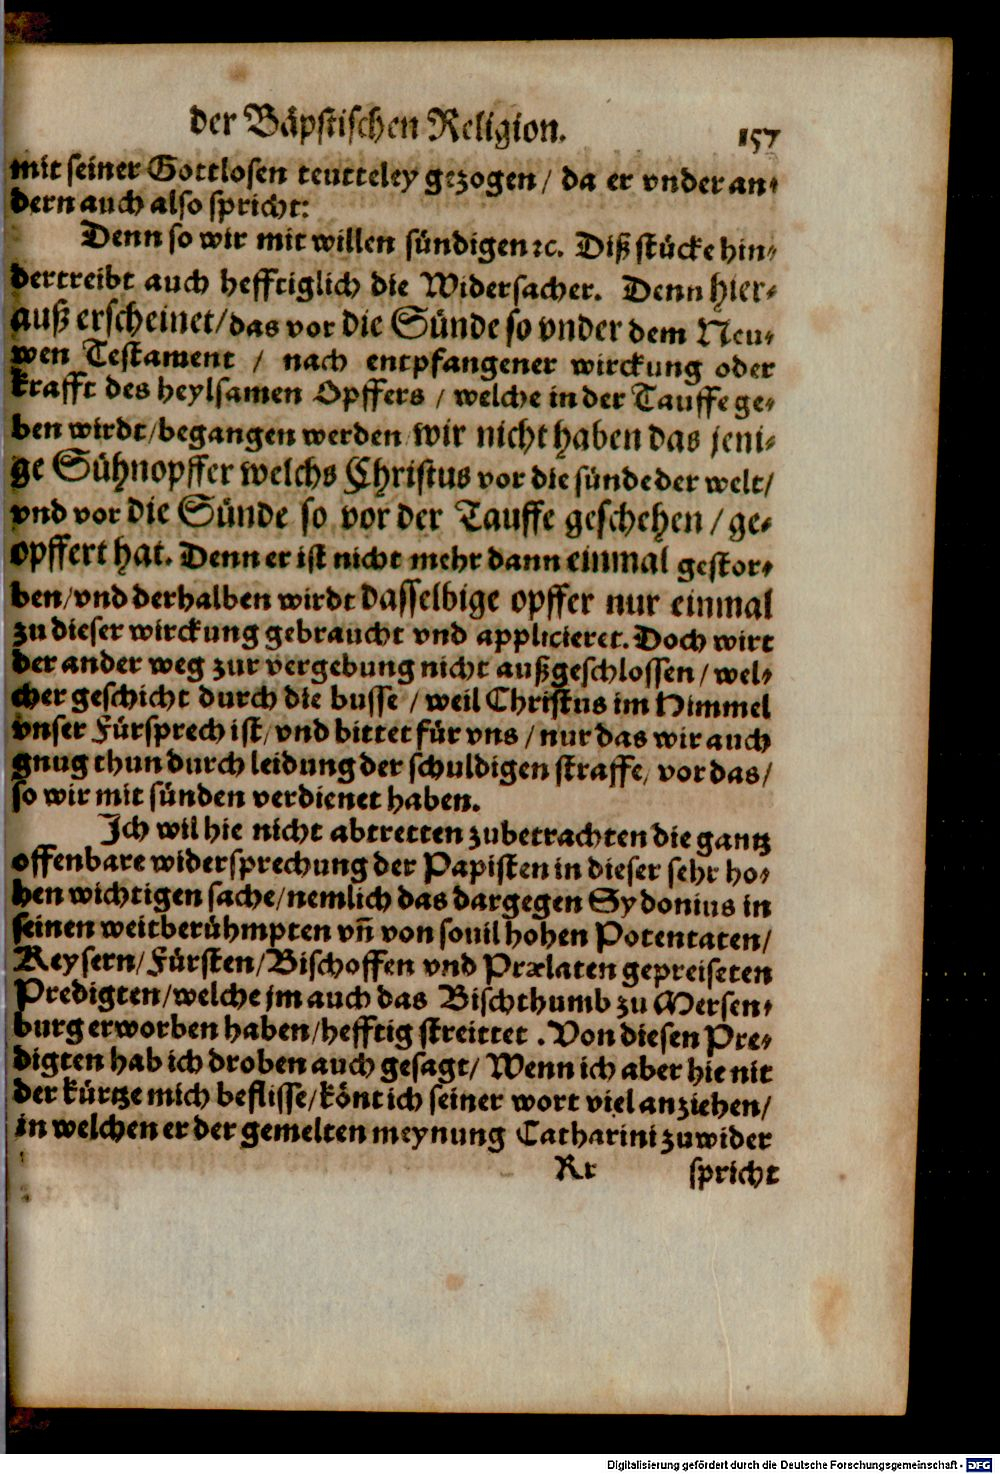 der Bäpstischen Religion. 157
mit seiner Gottlosen teutteley gezogen/ da er vnder an⸗
dern auch also spricht:
Denn so wir mit willen sündigen ꝛc. Diß stücke hin⸗
dertreibt auch hefftiglich die Widersacher. Denn hier⸗
auß erscheinet/das vor die Sünde so vnder dem Neu⸗
wen Testament / nach entpfangener wirckung oder
krafft des heylsamen Opffers / welche in der Tauffe ge⸗
ben wirdt/begangen werden/wir nicht haben das jeni⸗
ge Sühnopffer welchs Christus vor die sünde der welt/
vnd vor die Sünde so vor der Tauffe geschehen / ge⸗
opffert hat. Denn er ist nicht mehr dann einmal gestor⸗
ben/vnd derhalben wirdt dasselbige opffer nur einmal
zu dieser wirckung gebraucht vnd applicieret. Doch wirt
der ander weg zur vergebung nicht außgeschlossen / wel⸗
cher geschicht durch die busse / weil Christus im Himmel
vnser Fürsprech ist/ vnd bittet für vns / nur das wir auch
gnug thun durch leidung der schuldigen straffe/ vor das/
so wir mit sünden verdienet haben.
Ich wil hie nicht abtretten zubetrachten die gantz
offenbare widersprechung der Papisten in dieser sehr ho⸗
hen wichtigen sache/nemlich das dargegen Sydonius in
seinen weitberühmpten vñ von souil hohen Potentaten/
Keysern/Fürsten/Bischoffen vnd Prælaten gepreiseten
Predigten/welche jm auch das Bischthumb zu Mersen⸗
burg erworben haben/hefftig streittet . Von diesen Pre⸗
digten hab ich droben auch gesagt/ Wenn ich aber hie nit
der kürtze mich beflisse/könt ich seiner wort viel anziehen/
in welchen er der gemelten meynung Catharini zuwider
Rr spricht
Digitalisierung gefördert durch die Deutsche Forschungsgemeinschaft - DFG